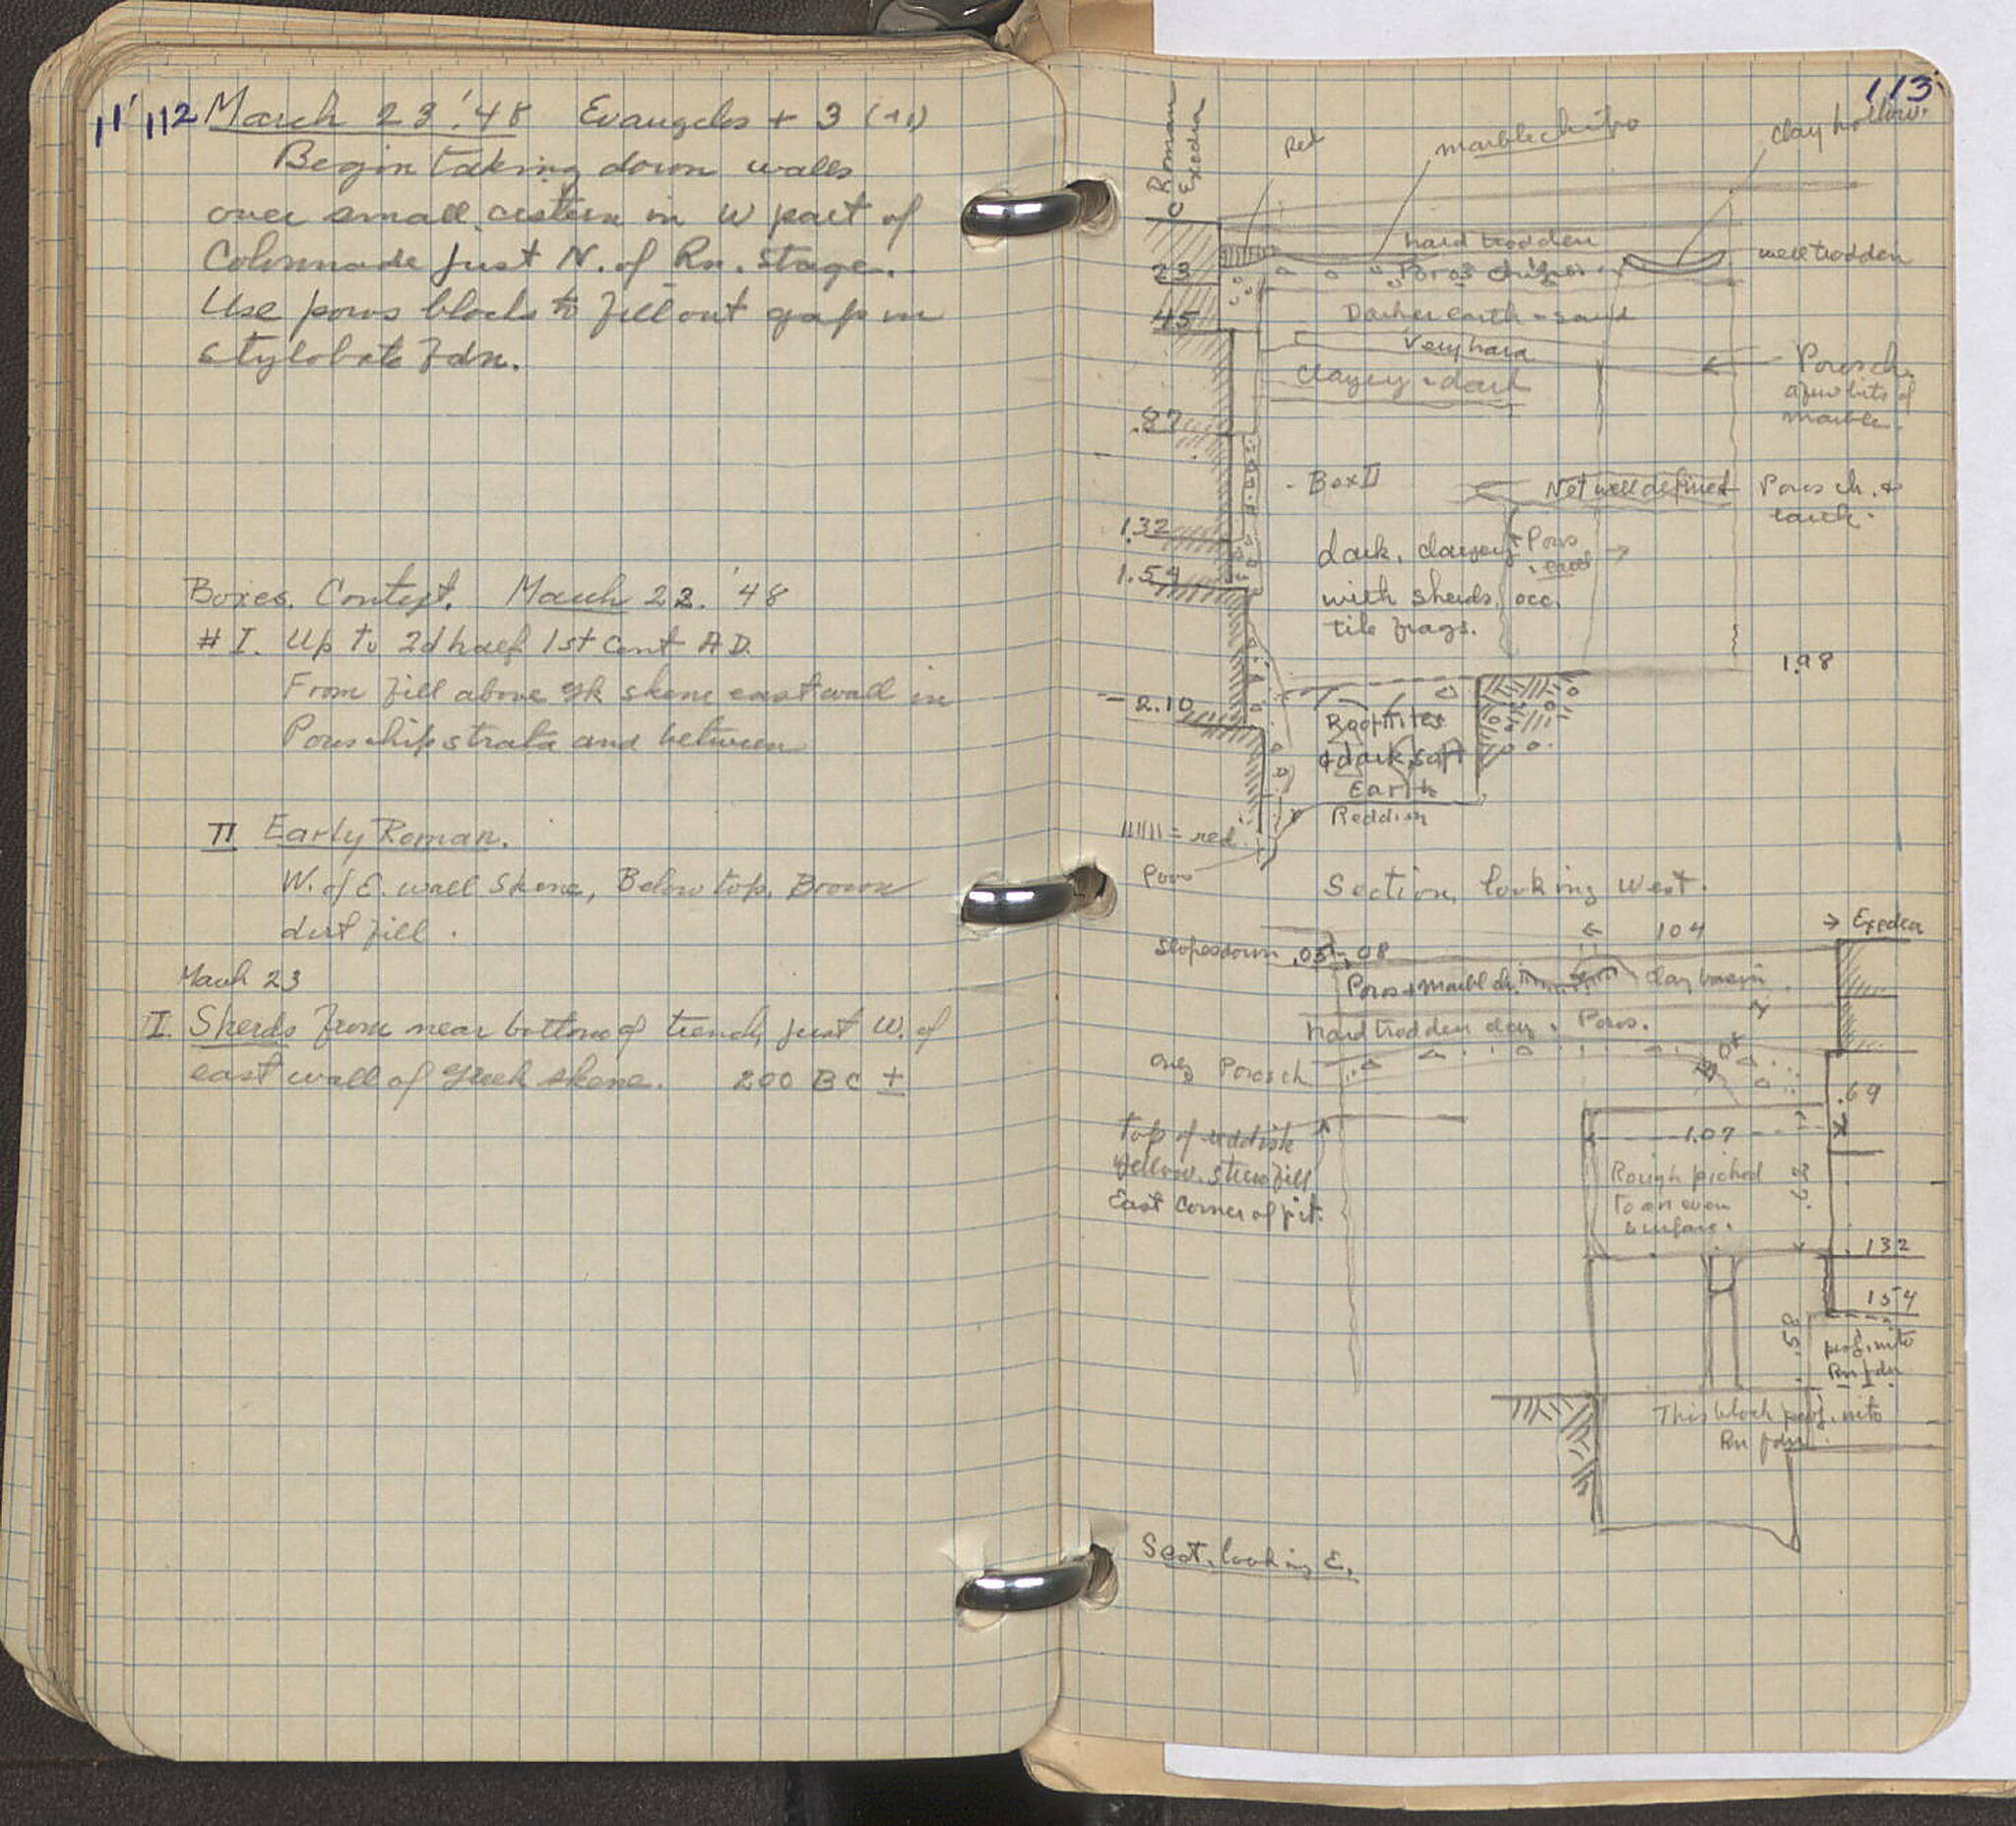 11' 112 March 23 '48 Evangelos + 3 (+1)
Begin taking down walls
over small cistern in W part of
Colonnade just N. of Rn. Stage.
Use poros blocks to fill out gap in
stylobate fdn.
Boxes. Context. March 22. '48
# I. Up to 2d half 1st Cent A.D.
From fill above Gk skene east wall in
Poros chip strata and between
II Early Roman.
W. of E. wall Skene, Below top. Brown
dirt fill.
March 23
I. Sherds from near bottom of trench, just W. of
east wall of Greek skene. 200 BC ±
113
Roman
Exedra
Red
marble chips
clay hollow.
hard trodden
well trodden
23
Poros chips
45
Darker earth + sand
Very hard
Poros ch.
clayey + dark
a few bits of
marble.
.87
Box II
Not well defined
Poros ch. +
earth.
1.32
dark, clayey
Poros
+ earth
1.54
with sherds, occ.
tile frags.
1.98
2.10
Rooftiles
+ dark, soft
Earth
Reddish
= red
Poros
Section, looking West.
104
→ Exedra
Slopes down .05 - .08
Poros + marbl ch.
clay basin
hard trodden clay + Poros.
only Poros ch
.69
top of reddish
yellow, strewn fill
East Corner of pit.
1.07
Rough picked
to an even
surface.
132
154
.58
proj. into
Rn fdn
This block proj. into
Rn fdn.
Sect. looking E.